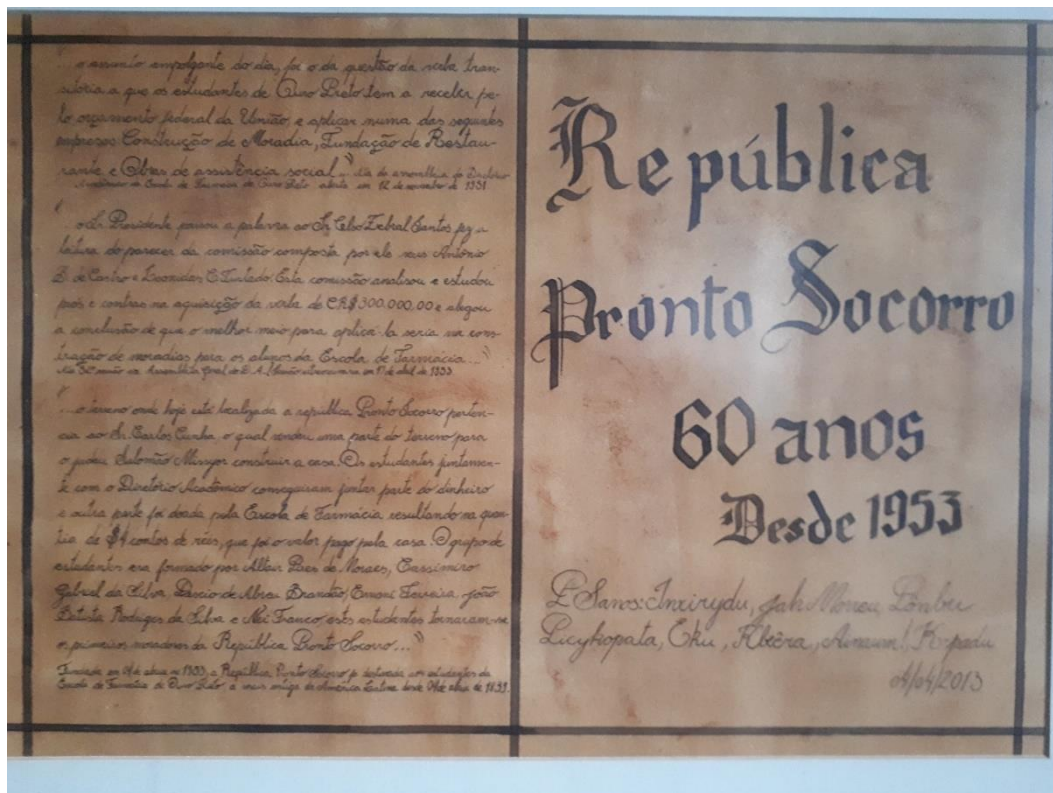 "... o assunto empolgante do dia, foi o da questão da verba tran-
sitória a que os estudantes de Ouro Preto tem a receber pe-
lo orçamento federal da União, e aplicar numa das seguintes
empresas Construção de Moradia, Fundação de Restau-
rante e Obras de assistência social..." Ata da assembléia do Diretório
Acadêmico da Escola de Farmácia de Ouro Preto, aberta em 12 de novembro de 1951.
"
... o Sr. Presidente passou a palavra ao Sr. Celso Zebral Santos fez a
leitura do parecer da comissão composta por ele mais Antônio
B. de Castro e Leonidas C. Furtado. Esta comissão analisou e estudou
prós e contras na aquisição da verba de CR$ 300.000,00 e alegou
a conclusão de que o melhor meio para aplicá-la seria na cons-
trução de moradias para os alunos da Escola de Farmácia..."
Geral do D. A. em 17 de abril de 1953
"
... o terreno onde hoje está localizada a república Pronto Socorro perten-
cia ao Sr. Carlos Cunha, o qual vendeu uma parte do terreno para
o judeu Salomão construir a casa. Os estudantes juntamen-
te com o Diretório Acadêmico conseguiram juntar parte do dinheiro
e outra parte foi doada pela Escola de Farmácia resultando na quan-
tia de $4 contos de réis, que foi o valor pago pela casa. O grupo de
estudantes era formado por Altair Paes de Moraes, Cassimiro
Gabriel da Silva, Dáscio de Abreu Brandão, Ernani Ferreira, João
Batista Rodriges da Silva e Nei Franco, estes estudantes tornaram-se
os primeiros moradores da República Pronto Socorro..."
Fundada em 04 de abril de 1953, a República Pronto Socorro foi destinada aos estudantes da
Escola de Farmácia de Ouro Preto, a mais antiga da América Latina desde 04 de abril de 1839.
República
Pronto Socorro
60 anos
Desde 1953
Jah Morreu, Pômbu
Licyhopata, Eku, K-padu
04/04/2013